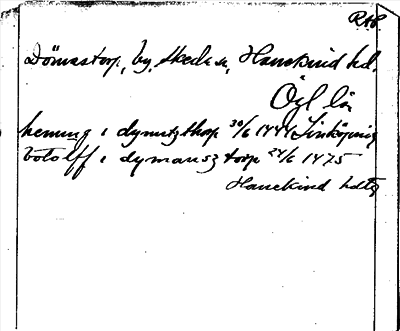 RAP
Dömastorp, by, Skeda sn, Hanekind hd.
Ögl län
hemung i dynutzthorp 30/6 1444 Linköping
botolff i dymansz torp 24/6 1475
Hanekind hdtg